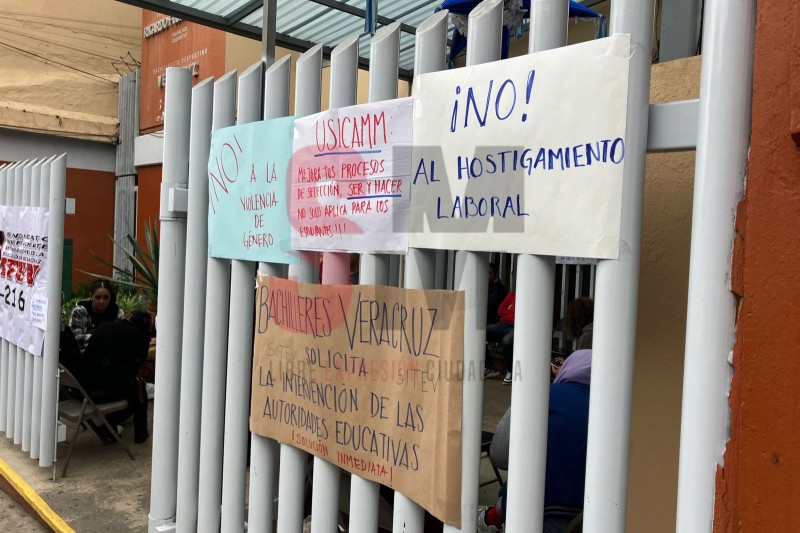 RICARDO
¡NO!
A LA
VIOLENCIA
DE
GÉNERO
USICAMM:
MEJORA TUS PROCESOS
DE SELECCIÓN, SER Y HACER
NO SOLO APLICA PARA LOS
ESTUDIANTES !!!
¡NO!
AL HOSTIGAMIENTO
LABORAL
BACHILLERES VERACRUZ
SOLICITA
LA INTERVENCIÓN DE LAS
AUTORIDADES EDUCATIVAS
¡SOLUCIÓN INMEDIATA!
-216
LIBRE EXPRESIÓN CIUDADANA